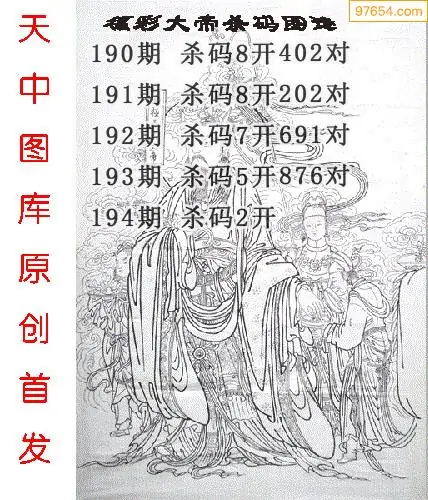 97654.com
福彩大帝杀码图谜
190期 杀码8开402对
191期 杀码8开202对
192期 杀码7开691对
193期 杀码5开876对
194期 杀码2开
天中图库原创首发